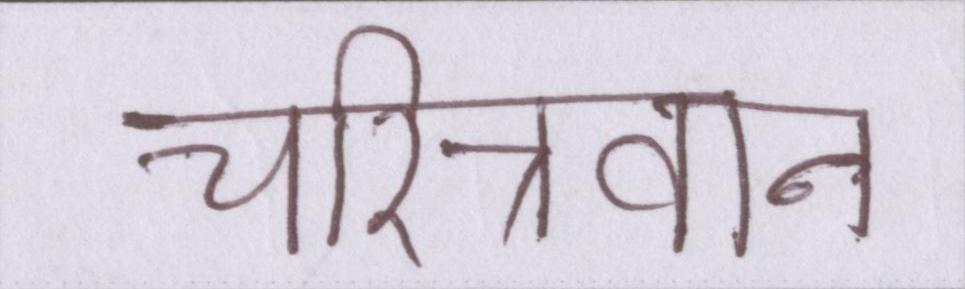 चरित्रवान